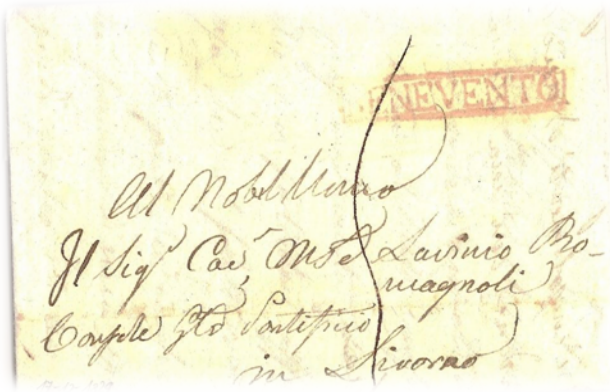 BENEVENTO
Al Nobil Uomo
Il Sigr Cavr Lavinio Ro-
magnoli
Console Gle Pontificio
in Livorno